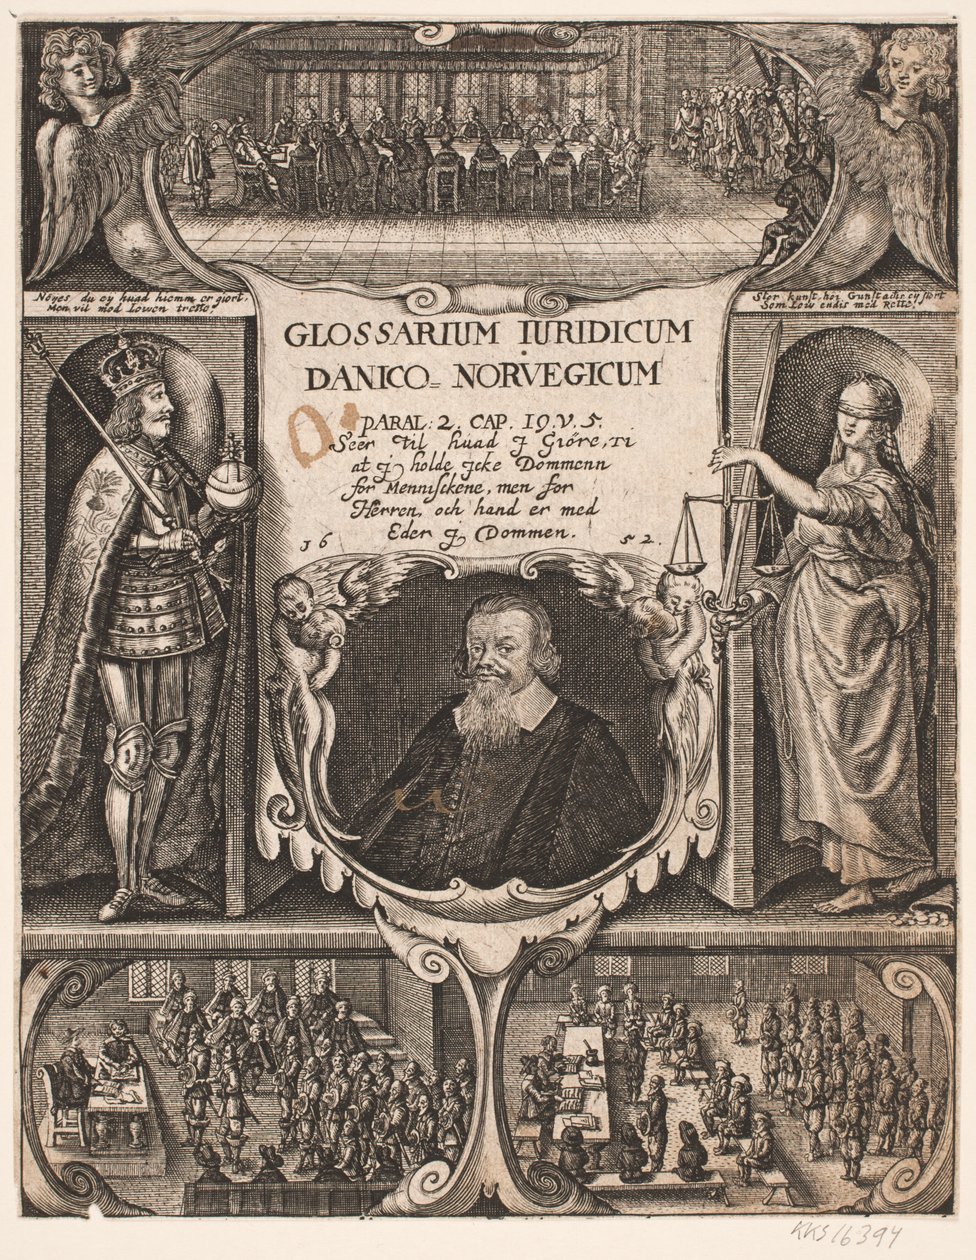 Nøyes du ey huad hiemm er giort,
Men vil med Lowen trette?
Stor kunst, høi Gunst actis ey stort
Som Low endis med Rette.
GLOSSARIUM IURIDICUM
DANICO=NORVEGICUM
PARAL: 2. CAP. 19. V. 5.
Seer til huad J Giøre, Ti
at J holde Jcke Dommenn
for Menniskene, men for
Herren, och hand er med
Eder J Dommen.
16 52.
KKS16394